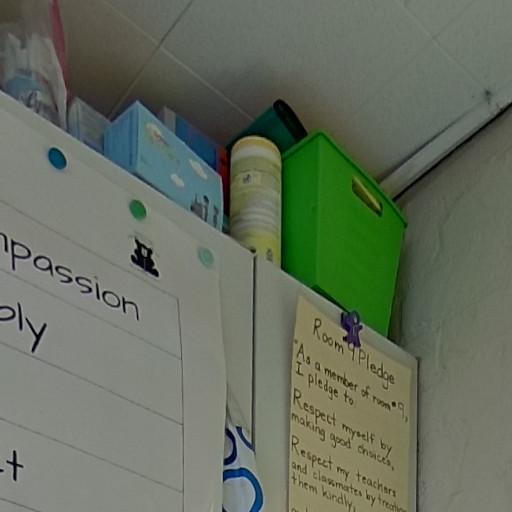 mpassion
ply
Room 9 Pledge
"As a member of room #9,
I pledge to
Respect myself by
making good choices,
Respect my teachers
and classmates by treating
them kindly,